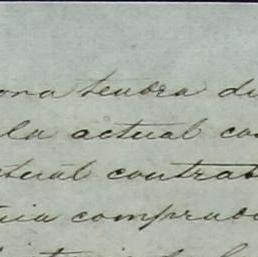 ona tendra di
la actual co
tual contrat
cia comproba